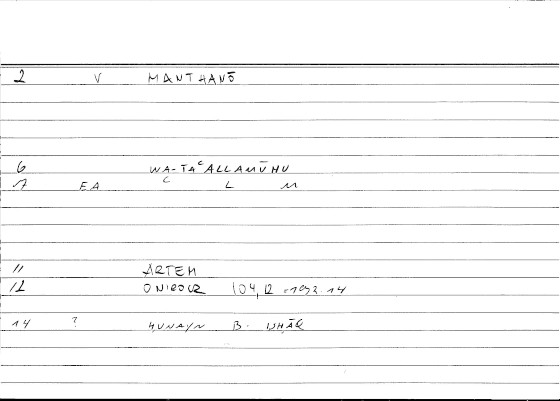 2 V MANTHANŌ
6 WA-TAᶜALLAMŪHU
7 EA C L M
11 ARTEM
12 ONIROCR 104,12 = 193.14
14 ? ḤUNAYN B. ISḤĀQ